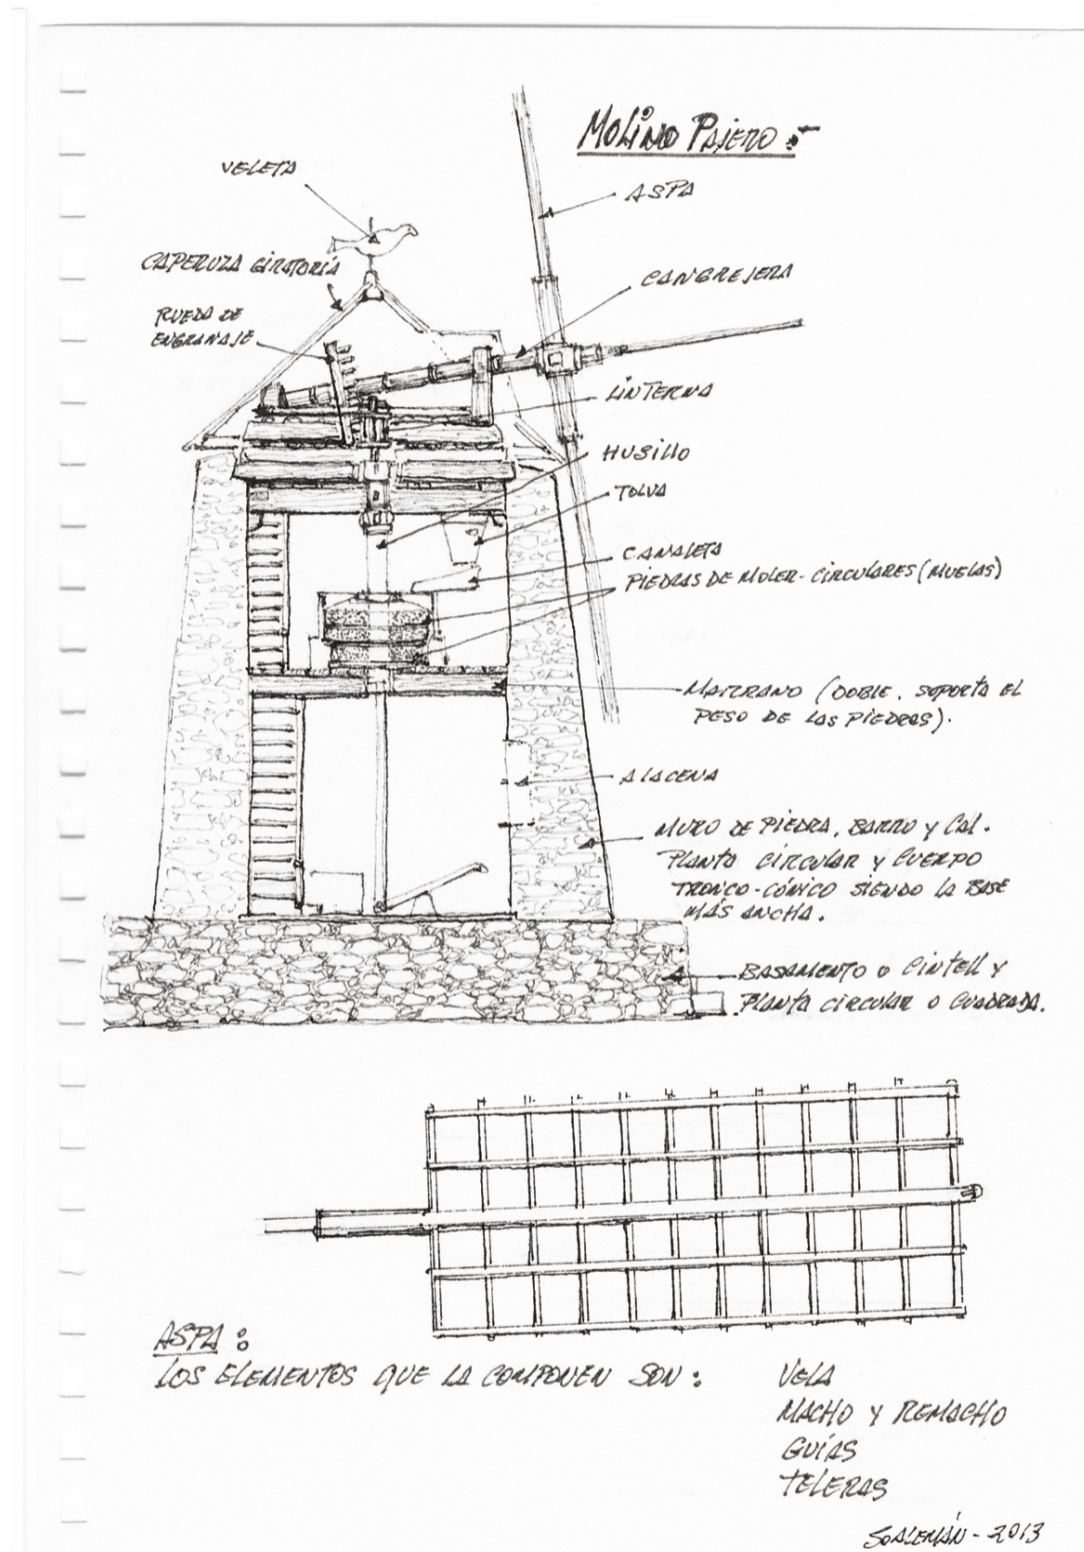 MOLINO PAJERO:-
VELETA
ASPA
CAPERUZA GIRATORIA
CANGREJERA
RUEDA DE
ENGRANAJE
LINTERNA
HUSILLO
TOLVA
CANALETA
PIEDRAS DE MOLER-CIRCULARES (MUELAS)
MARRANO (DOBLE. SOPORTA EL
PESO DE LAS PIEDRAS).
ALACENA
MURO DE PIEDRA, BARRO Y CAL.
PLANTA CIRCULAR Y CUERPO
TRONCO-CÓNICO SIENDO LA BASE
MÁS ANCHA.
BASAMENTO O CINTELL Y
PLANTA CIRCULAR O CUADRADA.
ASPA:
LOS ELEMENTOS QUE LA COMPONEN SON:
VELA
MACHO Y REMACHO
GUÍAS
TELERAS
2013